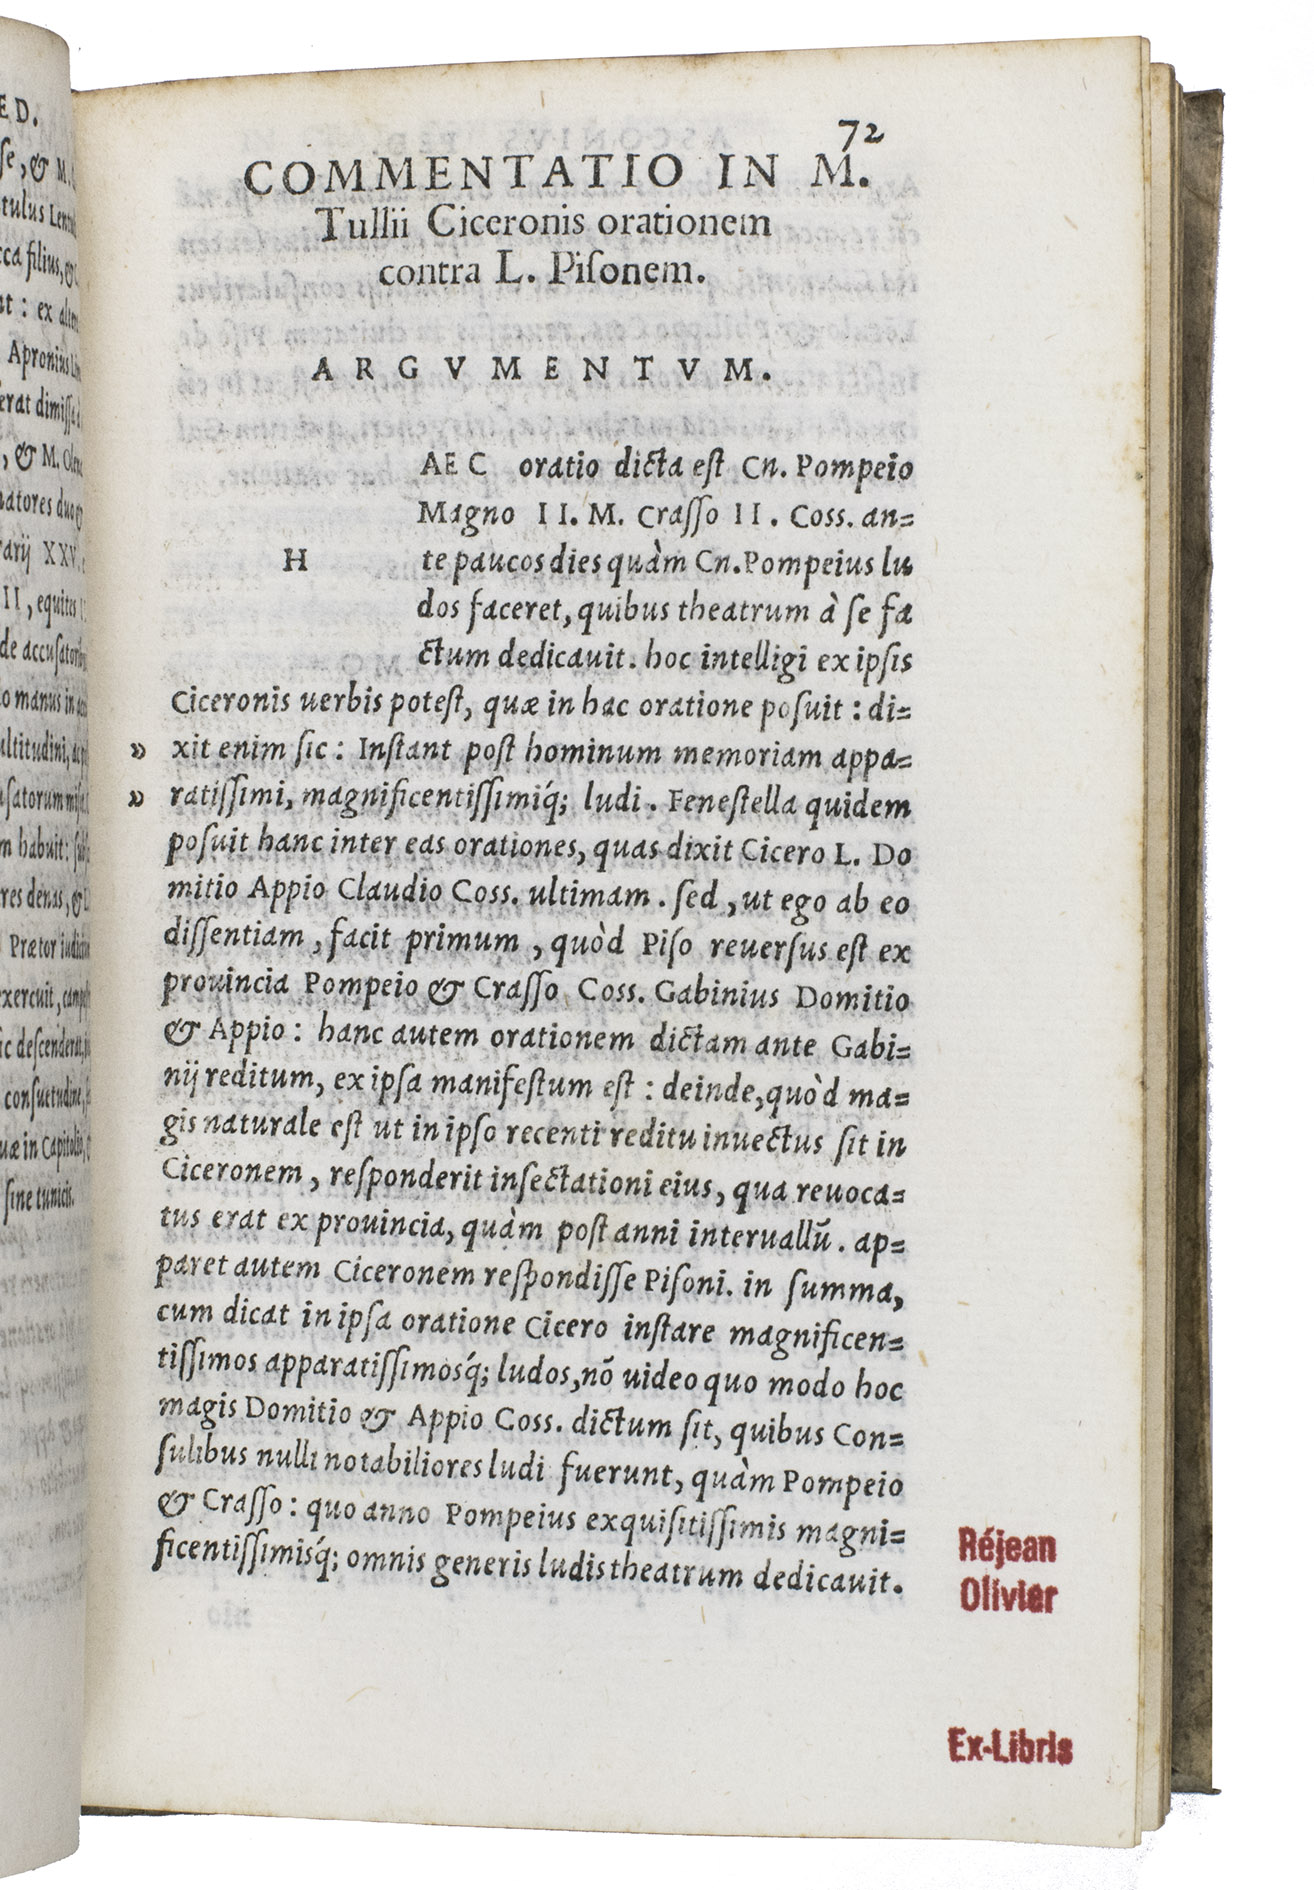 ED.
se, & M.
tulus Lentul
cca filius, &
nt : ex alter
Apronius Lim
erat dimissa
, & M. Olen
natores duo &
rarij XXV.
II, equites
de accusatorib
o manus in
ultitudini, ac
usatorum
m habuit: sub
res denas, & L
Prætor iudiciu
exercuit, camp
ic descenderat,
consuetudine,
uæ in Capitolio,
sine tunicis.
72
COMMENTATIO IN M.
Tullii Ciceronis orationem
contra L. Pisonem.
ARGVMENTVM.
HAEC oratio dicta est Cn. Pompeio
Magno II. M. Crasso II. Coss. an=
te paucos dies quàm Cn. Pompeius lu
dos faceret, quibus theatrum à se fa
ctum dedicauit. hoc intelligi ex ipsis
Ciceronis uerbis potest, quæ in hac oratione posuit : di=
» xit enim sic : Instant post hominum memoriam appa=
» ratissimi, magnificentissimiq́; ludi. Fenestella quidem
posuit hanc inter eas orationes, quas dixit Cicero L. Do
mitio Appio Claudio Coss. ultimam. sed, ut ego ab eo
dissentiam, facit primum, quòd Piso reuersus est ex
prouincia Pompeio & Crasso Coss. Gabinius Domitio
& Appio : hanc autem orationem dictam ante Gabi=
nij reditum, ex ipsa manifestum est : deinde, quòd ma=
gis naturale est ut in ipso recenti reditu inuectus sit in
Ciceronem, responderit insectationi eius, qua reuoca=
tus erat ex prouincia, quàm post anni interuallũ. ap=
paret autem Ciceronem respondisse Pisoni. in summa,
cum dicat in ipsa oratione Cicero instare magnificen=
tissimos apparatissimosq́; ludos, nõ uideo quo modo hoc
magis Domitio & Appio Coss. dictum sit, quibus Con=
sulibus nulli notabiliores ludi fuerunt, quàm Pompeio
& Crasso : quo anno Pompeius exquisitissimis magni=
ficentissimisq́; omnis generis ludis theatrum dedicauit.
Réjean
Olivier
Ex-Libris